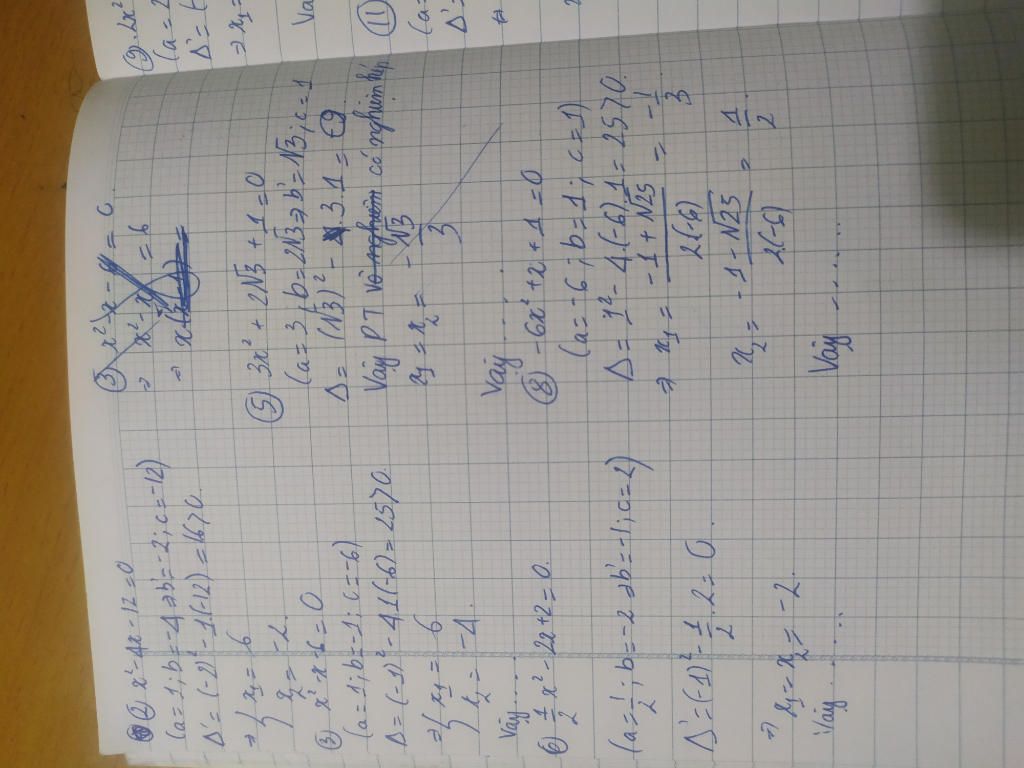 ① x² - 4x - 12 = 0
(a = 1; b = -4 → b' = -2; c = -12)
Δ' = (-2)² - 1(-12) = 16 > 0.
⇒ { x₁ = 6
x₂ = -2.
③ x² x 6 = 0
(a = 1; b = -1; c = -6)
Δ = (-1)² - 4.1(-6) = 25 > 0.
⇒ { x₁ = 6
x₂ = -4.
Vậy.....
⑥ 1/2 x² - 2x + 2 = 0.
(a = 1/2; b = -2 → b' = -1; c = 2)
Δ' = (-1)² - 1/2 . 2 = 0.
⇒ x₁ = x₂ = -2.
Vậy ......
⇒ x² - x = 6
⇒
⑤ 3x² + 2√3 + 1 = 0
(a = 3; b = 2√3 → b' = √3; c = 1
Δ = (√3)² - 3.1 = 0
Vậy PT vô nghiệm có nghiệm kép.
x₁ = x₂ = -√3/3
Vậy......
⑧ -6x² + x + 1 = 0
(a = -6; b = 1; c = 1)
Δ = 1² - 4.(-6).1 = 25 > 0.
⇒ x₁ = -1 + √25 / 2(-6) = -1/3
x₂ = -1 - √25 / 2(-6) = 1/2.
Vậy ......
⑨ 2x²
(a = 2
Δ' = (-
⇒ x₁ =
⑪
(a =
Δ' =